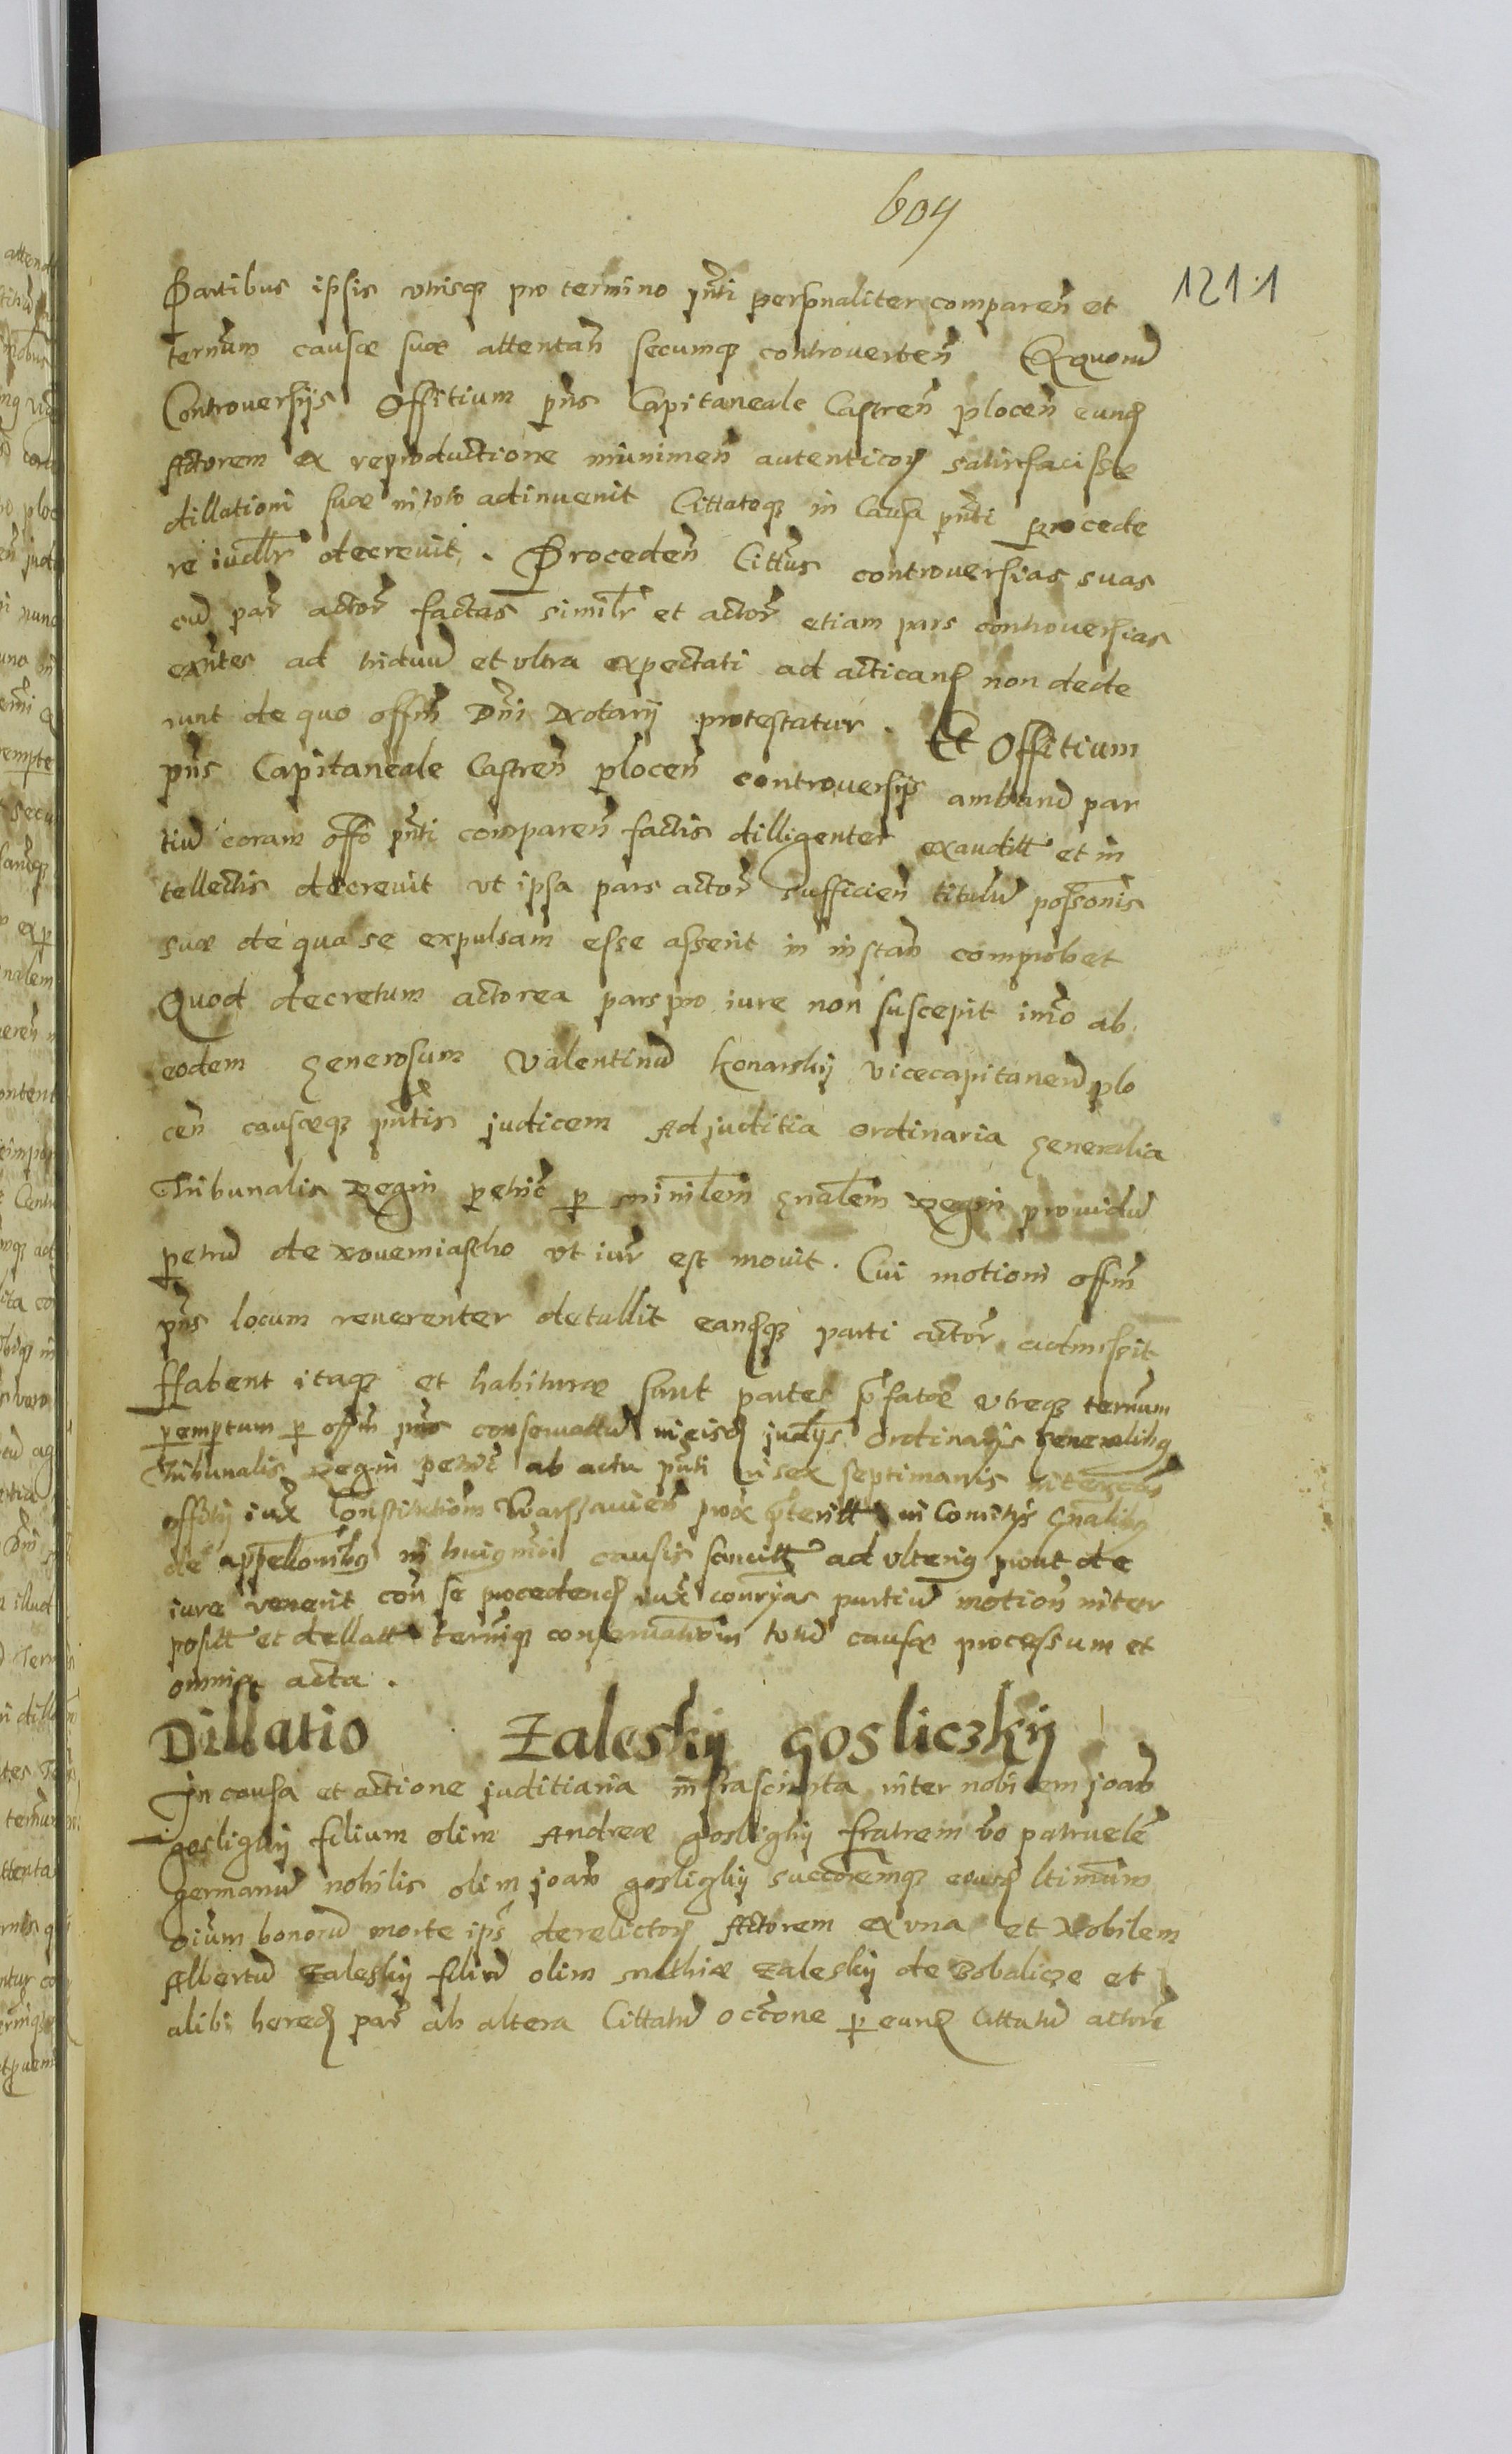 604
1211
Partibus ipsis utrisq pro termino pnti personaliter comparen et
termum causæ suæ attentan secumq controverten Ex quorum
Controversijs Offitium pns Capitaneale Castren plocen eund
Actorem ex reproductione munimen autenticor satisfacisse
dillationi suæ in toto adinuenit Cittatoq in Causa pnti procede
re iudlr decrevit. Proceden Cittus controversias suas
cum par actor factas similr et actor etiam pars controversias
exntes ad triduum et ultra expectati ad acticand non dede
runt de quo offm Dni Notarij protestatur. Et Offitium
pns Capitaneale Castren plocen controversijs ambarum par
tium coram offo pnti comparen factis dilligenter exauditt et in
tellectis decrevit ut ipsa pars actor sufficien titulum possonis
suæ de qua se expulsam esse asserit in instan comprobet
Quod decretum actorea pars pro iure non suscepit imo ab
eodem generosum Valentinum Konarskij vicecapitaneum plo
cen causæq pntis judicem Ad juditia ordinaria generalia
Tribunalis Regni petric p minlem gnalem Regni providum
petrum de nouemiastho ut iur est movit. Cui motioni offm
pns locum reverenter detullit eandq parti actor admissit
Habent itaq et habituræ sunt partes præfatæ utreq termum
peremptum p offm pns conservattum in eisd judijs Ordinarijs generalibq
Tribunalis Regni petric ab actu pnti in sex septimanis
offitij iux Constitutiom Warszavien prox præteritt in Comitijs Gnalibq
de appellonibq in huiqmoi causis ad ulteriq prout de
iure venerit con se procedend iux partium motion inter
positt et dellatt termiq conservationem totum causæ processum et
omnia acta.
Dillatio Zaleskij Gosliczkij
In causa et actione juditiaria infrascripta inter nobilem joan
gosligkij filium olim Andreæ gosligkij fratrem vo patruelem
germanum nobilis olim joan gosligkij succoremq eiusd ltimum
oium bonorum morte ips derelictor Actorem ex una et Nobilem
Albertum Zaleskij filium olim Mathiæ Zaleskij de Bobalicze et
alibi hered par ab altera Cittatum occone p eund Cittatum actore